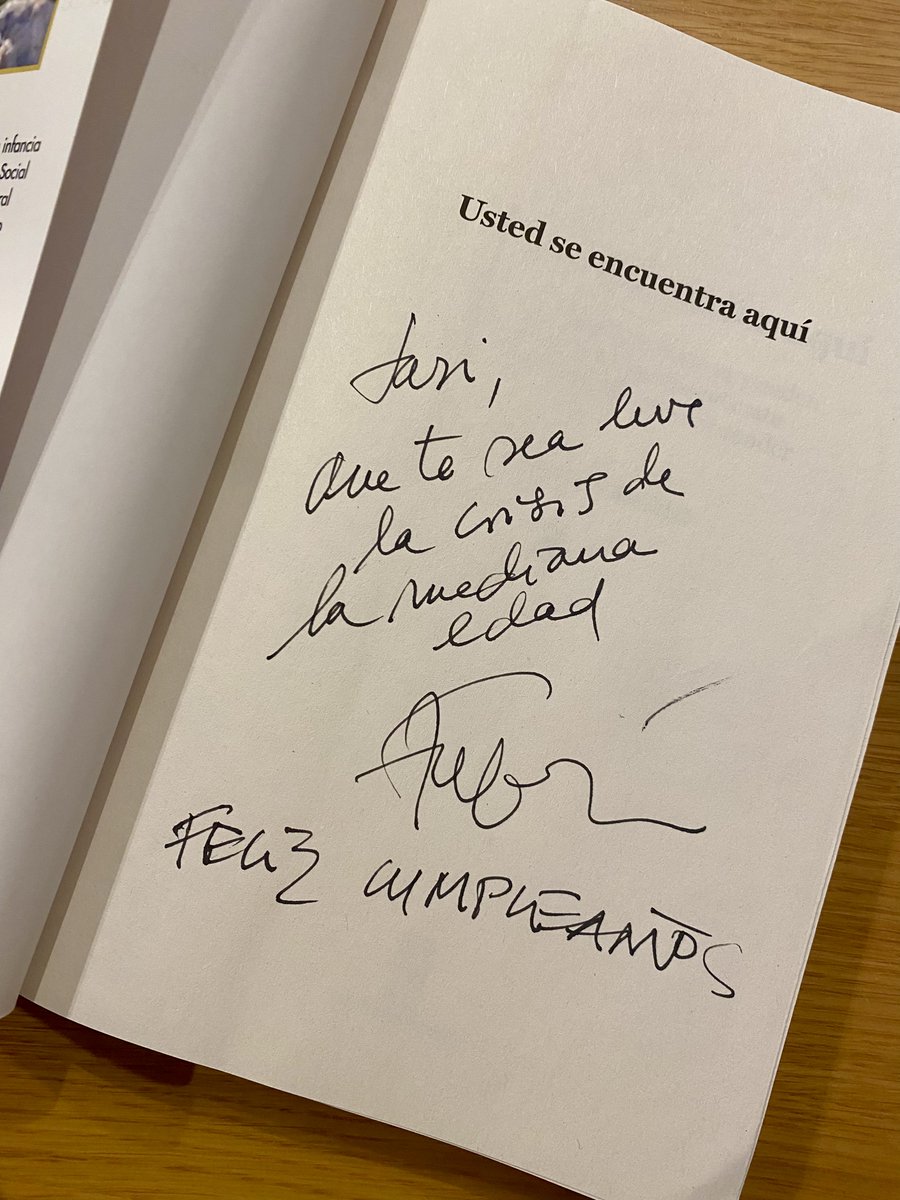 infancia
Social
ral
Usted se encuentra aquí
que te sea leve
la crisis de
la mediana
edad
FELIZ CUMPLEAÑOS